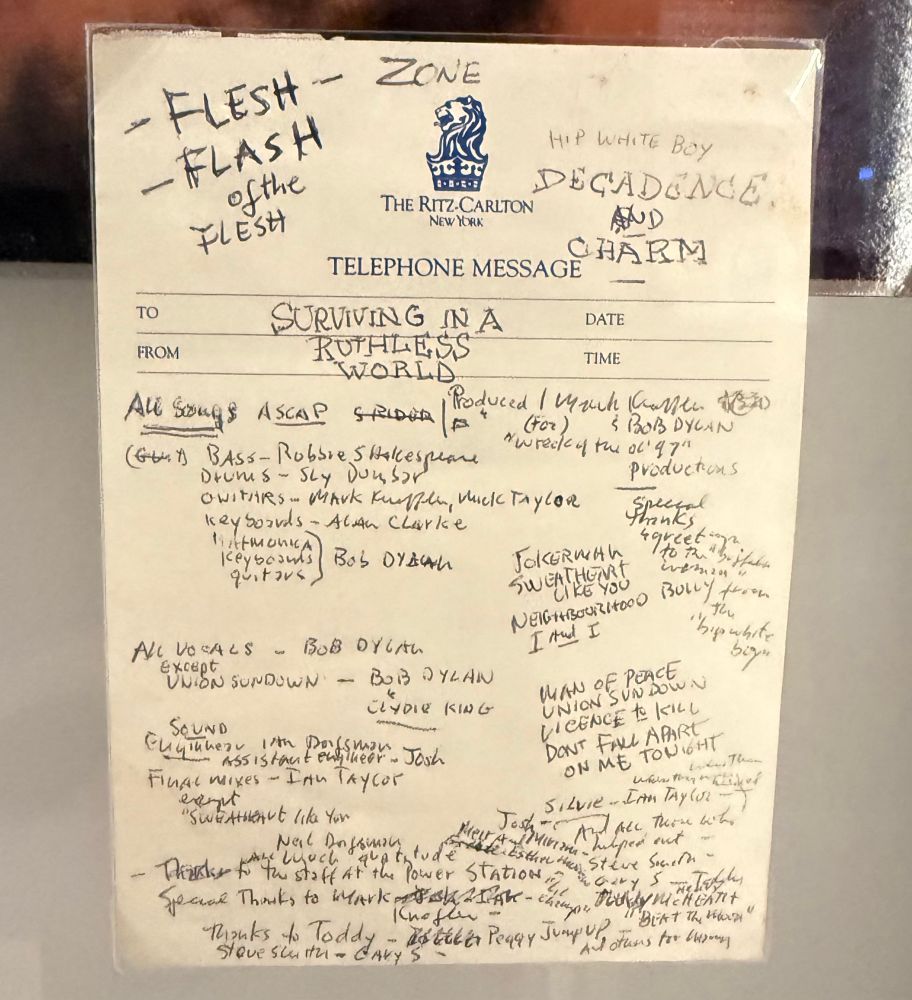 ZONE
- FLESH -
- FLASH
of the
FLESH
HIP WHITE BOY
DECADENCE
AND
CHARM
THE RITZ-CARLTON
NEW YORK
TELEPHONE MESSAGE
TO
SURVIVING IN A
DATE
FROM
RUTHLESS
TIME
WORLD
All Songs ASCAP
Produced / Mark Knopfler
(For) & BOB DYLAN
"wreck of the ol' 97"
productions
BASS - Robbie Shakespeare
DRUMS - Sly Dunbar
GUITARS - MARK Knopfler, MICK TAYLOR
Keyboards - ALAN CLARKE
HARMONICA
Keyboards
guitars
Bob DYLAN
Special
Thanks
& greetings
to the
woman"
BULLY from
the
"hip white
JOKERMAN
SWEATHEART
LIKE YOU
NEIGHBOURHOOD
I and I
ALL VOCALS - BOB DYLAN
except
UNION SUNDOWN - BOB DYLAN
&
CLYDIE KING
MAN OF PEACE
UNION SUNDOWN
LICENCE to KILL
DONT FALL APART
ON ME TONIGHT
SOUND
Engineer IAN Dorfsman
ASSISTANT engineer - Josh
Final mixes - IAN TAYLOR
except
"SWEATHEART like You
Neil Dorfsman
Silvie - IAN TAYLOR -
Josh -
And ALL Those who
helped out -
Steve Smith -
Gary S -
- Thanks to the STAFF AT the POWER STATION -
Special Thanks to MARK
Knopfler -
"BEAT the
Thanks to Toddy - Peggy JUMP UP
Steve Smith - GARY S -